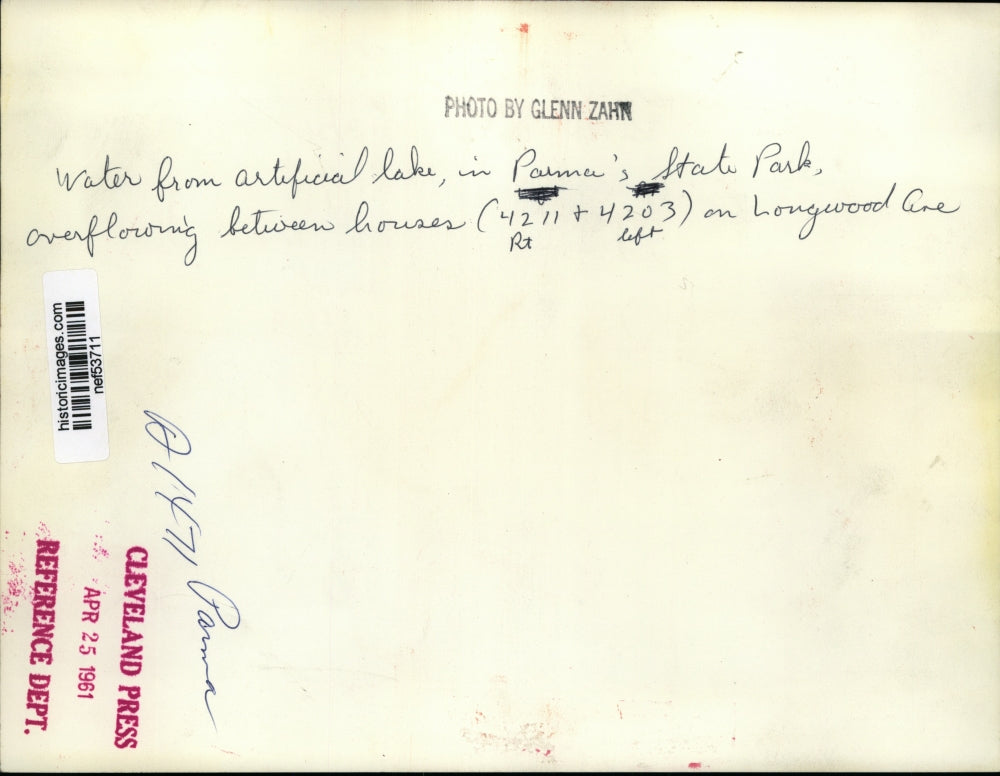 PHOTO BY GLENN ZAHN
Water from artificial lake, in Parma's State Park,
overflowing between houses (4211 + 4203) on Longwood Ave
Rt left
historicimages.com
nef53711
A1471 Parma
CLEVELAND PRESS
APR 25 1961
REFERENCE DEPT.